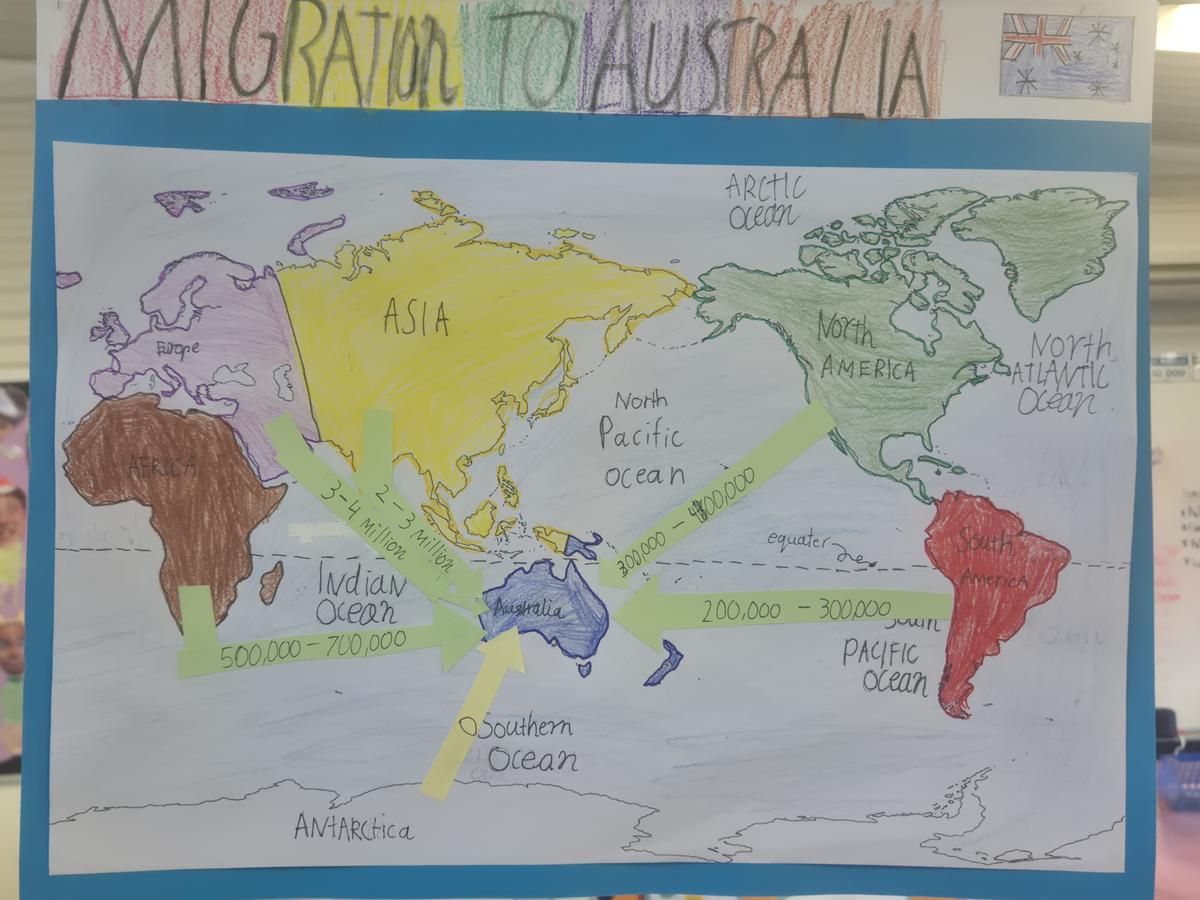 MIGRATION TO AUSTRALIA
ARCTIC
Ocean
ASIA
Europe
North
AMERICA
North
ATLANTIC
Ocean
North
Pacific
ocean
AFRICA
3-4 Million
2-3 Million
300,000 - 400,000
equater
South
America
INDIAN
OCEAN
Australia
200,000 - 300,000
500,000 - 700,000
South
PACIFIC
OCEAN
Southern
Ocean
ANTARCtica